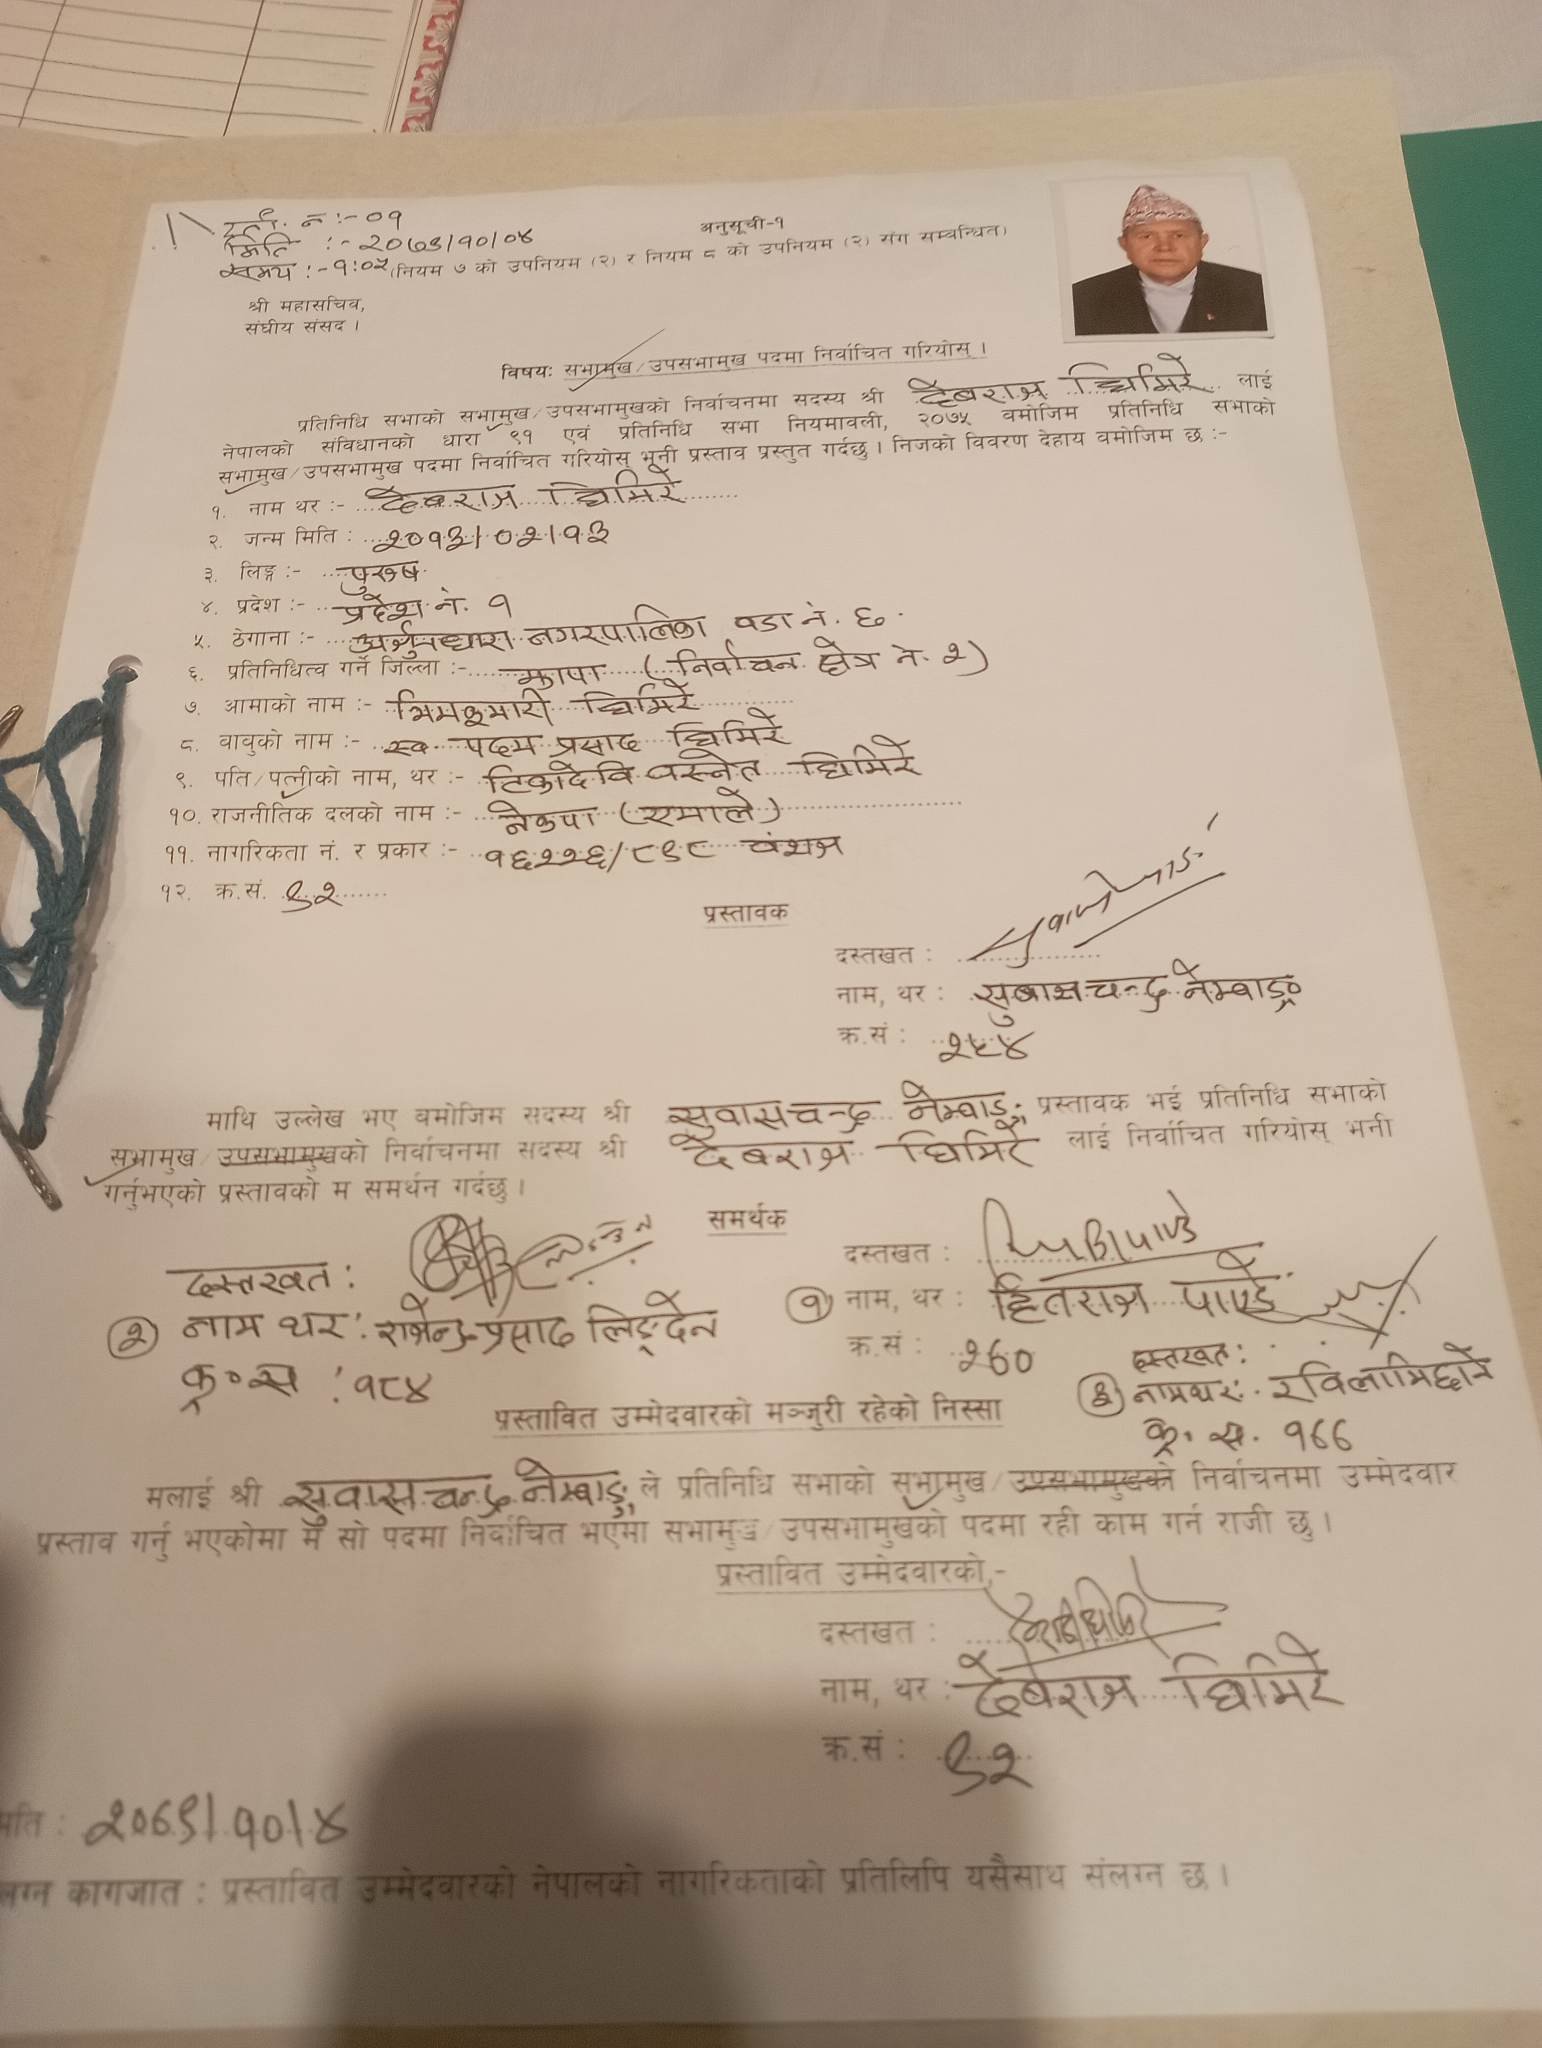 दर्ता. नं :- ०१
मिति :- २०७९/१०/०४
समय :- १:०५
अनुसूची-१
(नियम ७ को उपनियम (२) र नियम ८ को उपनियम (२) संग सम्बन्धित)
श्री महासचिव,
संघीय संसद ।
विषय: सभामुख/उपसभामुख पदमा निर्वाचित गरियोस् ।
प्रतिनिधि सभाको सभामुख/उपसभामुखको निर्वाचनमा सदस्य श्री देवराज घिमिरे लाई
नेपालको संविधानको धारा ९१ एवं प्रतिनिधि सभा नियमावली, २०७५ वमोजिम प्रतिनिधि सभाको
सभामुख/उपसभामुख पदमा निर्वाचित गरियोस् भनी प्रस्ताव प्रस्तुत गर्दछु । निजको विवरण देहाय वमोजिम छ :-
१. नाम थर :- देबराज घिमिरे
२. जन्म मिति : २०१३/०२/१३
३. लिङ्ग :- पुरुष
४. प्रदेश :- प्रदेश नं. १
५. ठेगाना :- अर्जुनधारा नगरपालिका वडा नं. ६
६. प्रतिनिधित्व गर्ने जिल्ला :- झापा (निर्वाचन क्षेत्र नं. २)
७. आमाको नाम :- भिमकुमारी घिमिरे
८. वावुको नाम :- स्व पदम प्रसाद घिमिरे
९. पति/पत्नीको नाम, थर :- टिकादेवि वस्नेत घिमिरे
१०. राजनीतिक दलको नाम :- नेकपा (एमाले)
११. नागरिकता नं. र प्रकार :- १६२२६/८९८ वंशज
१२. क्र.सं. ९२
प्रस्तावक
दस्तखत :
नाम, थर : सुबासचन्द्र नेम्वाङ्ग
क्र.सं : २५४
माथि उल्लेख भए वमोजिम सदस्य श्री सुवासचन्द्र नेम्वाङ्ग प्रस्तावक भई प्रतिनिधि सभाको
सभामुख/उपसभामुखको निर्वाचनमा सदस्य श्री देबराज घिमिरे लाई निर्वाचित गरियोस् भनी
गर्नुभएको प्रस्तावको म समर्थन गर्दछु ।
समर्थक
दस्तखत :
① नाम, थर : हितराज पाण्डे
क्र.सं : २७०
दस्तखत :
② नाम थर : राजेन्द्र प्रसाद लिङ्देन
क्र०स : १८४
दस्तखत :
③ नामथर : रवि लामिछाने
क्र. स. १७७
प्रस्तावित उम्मेदवारको मञ्जुरी रहेको निस्सा
मलाई श्री सुवासचन्द्र नेम्वाङ्ग ले प्रतिनिधि सभाको सभामुख/उपसभामुखको निर्वाचनमा उम्मेदवार
प्रस्ताव गर्नु भएकोमा म सो पदमा निर्वाचित भएमा सभामुख/उपसभामुखको पदमा रही काम गर्न राजी छु ।
प्रस्तावित उम्मेदवारको,-
दस्तखत :
नाम, थर : देबराज घिमिरे
क्र.सं : ९२
मिति : २०७९/१०/४
लग्न कागजात : प्रस्तावित उम्मेदवारको नेपालको नागरिकताको प्रतिलिपि यसैसाथ संलग्न छ ।